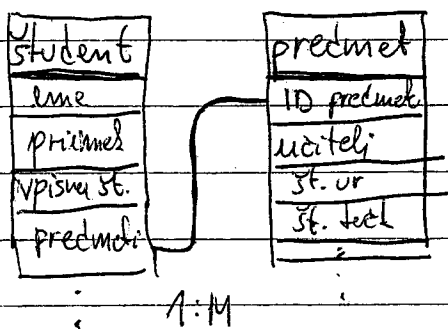 študent
ime
priimek
vpisna št.
predmeti
predmet
ID predmet
učitelj
št. ur
št. tečk
1:M